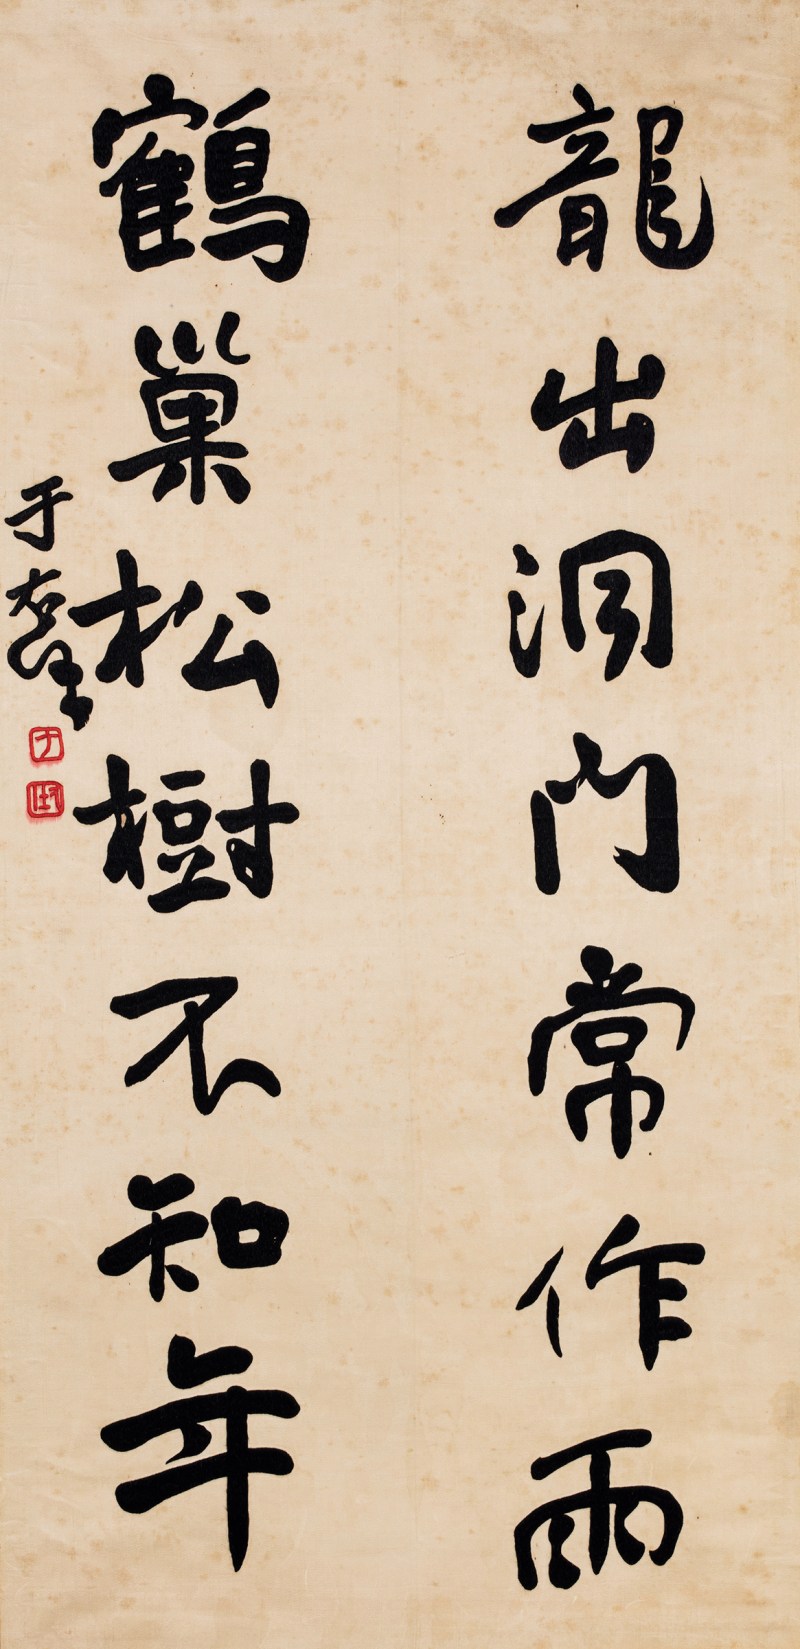 龍出洞門常作雨
鶴巢松樹不知年
于右任